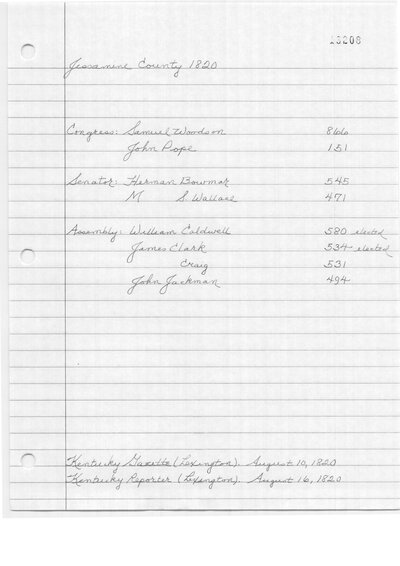 13208
Jessamine County 1820
Congress: Samuel Woodson 866
John Pope 151
Senator: Herman Bowmar 545
M S. Wallace 471
Assembly: William Caldwell 580 elected
James Clark 534 elected
Craig 531
John Jackman 494
Kentucky Gazette (Lexington). August 10, 1820
Kentucky Reporter (Lexington). August 16, 1820